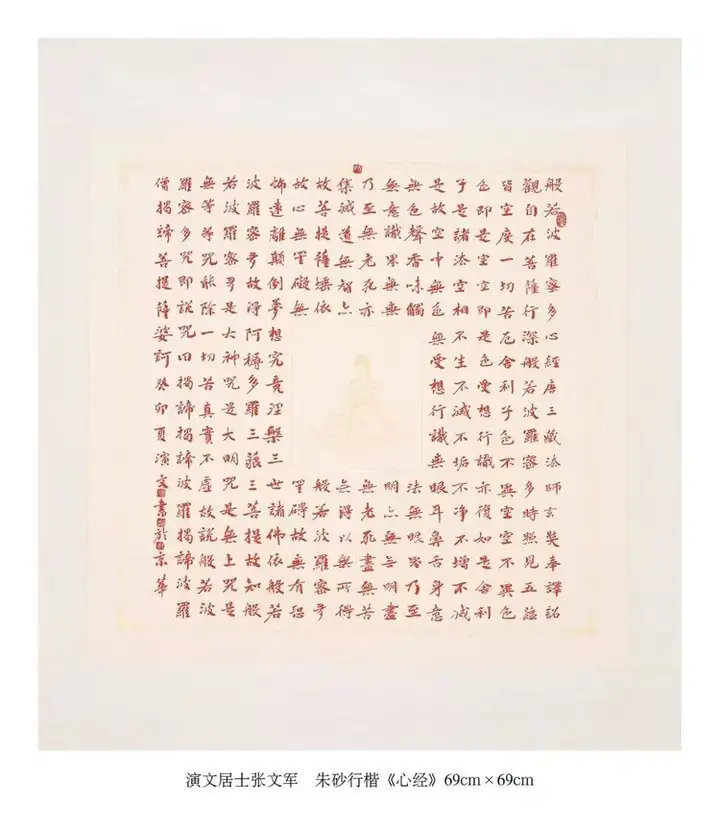 般若波羅密多心經唐三藏法師玄奘奉譯詔
觀自在菩薩行深般若波羅密多時照見五蘊
皆空度一切苦厄舍利子色不異空空不異色
色即是空空即是色受想行識亦復如是舍利
子是諸法空相不生不滅不垢不淨不增不減
是故空中無色無受想行識無眼耳鼻舌身意
無色聲香味觸法無眼界乃至
無意識界無無明亦無無明盡
乃至無老死亦無老死盡無苦
集滅道無智亦無得以無所得
故菩提薩埵依般若波羅密多
故心無罣礙無罣礙故無有恐
怖遠離顛倒夢想究竟涅槃三世諸佛依般若
波羅密多故得阿耨多羅三藐三菩提故知般
若波羅密多是大神咒是大明咒是無上咒是
無等等咒能除一切苦真實不虛故說般若波
羅密多咒即說咒曰揭諦揭諦波羅揭諦波羅
僧揭諦菩提薩婆訶癸卯夏演文書於京華
演文居士张文军 朱砂行楷《心经》69cm×69cm